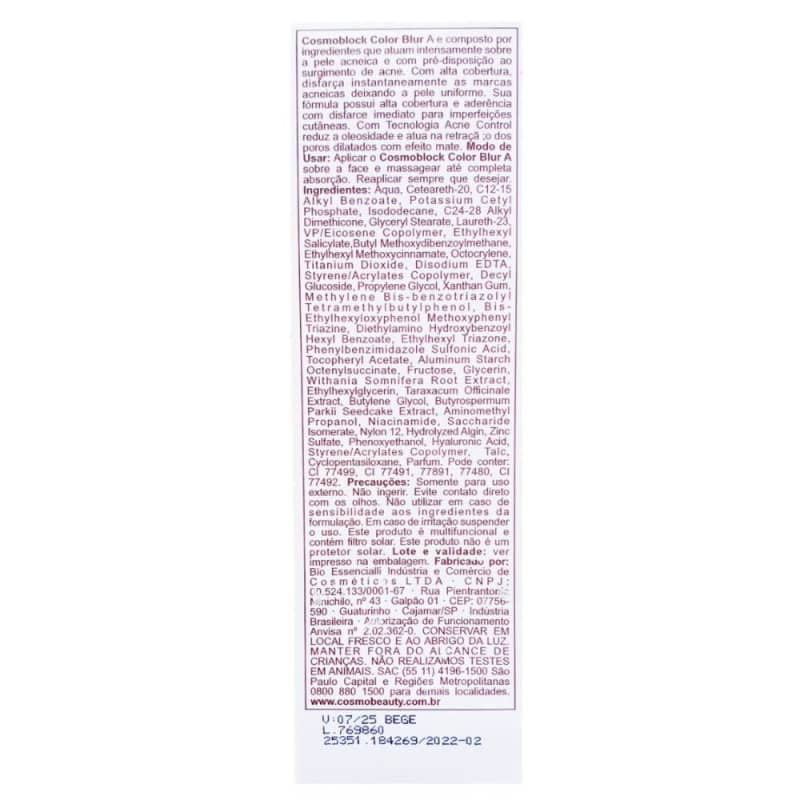 Cosmoblock Color Blur A e composto por
ingredientes que atuam intensamente sobre
a pele acneica e com pré-disposição ao
surgimento de acne. Com alta cobertura,
disfarça instantaneamente as marcas
acneicas deixando a pele uniforme. Sua
fórmula possui alta cobertura e aderência
com disfarce imediato para imperfeições
cutâneas. Com Tecnologia Acne Control
reduz a oleosidade e atua na retração dos
poros dilatados com efeito mate. Modo de
Usar: Aplicar o Cosmoblock Color Blur A
sobre a face e massagear até completa
absorção. Reaplicar sempre que desejar.
Ingredientes: Aqua, Ceteareth-20, C12-15
Alkyl Benzoate, Potassium Cetyl
Phosphate, Isododecane, C24-28 Alkyl
Dimethicone, Glyceryl Stearate, Laureth-23,
VP/Eicosene Copolymer, Ethylhexyl
Salicylate,Butyl Methoxydibenzoylmethane,
Ethylhexyl Methoxycinnamate, Octocrylene,
Titanium Dioxide, Disodium EDTA,
Styrene/Acrylates Copolymer, Decyl
Glucoside, Propylene Glycol, Xanthan Gum,
Methylene Bis-benzotriazolyl
Tetramethylbutylphenol, Bis-
Ethylhexyloxyphenol Methoxyphenyl
Triazine, Diethylamino Hydroxybenzoyl
Hexyl Benzoate, Ethylhexyl Triazone,
Phenylbenzimidazole Sulfonic Acid,
Tocopheryl Acetate, Aluminum Starch
Octenylsuccinate, Fructose, Glycerin,
Withania Somnifera Root Extract,
Ethylhexylglycerin, Taraxacum Officinale
Extract, Butylene Glycol, Butyrospermum
Parkii Seedcake Extract, Aminomethyl
Propanol, Niacinamide, Saccharide
Isomerate, Nylon 12, Hydrolyzed Algin, Zinc
Sulfate, Phenoxyethanol, Hyaluronic Acid,
Styrene/Acrylates Copolymer, Talc,
Cyclopentasiloxane, Parfum. Pode conter:
CI 77499, CI 77491, 77891, 77480, CI
77492. Precauções: Somente para uso
externo. Não ingerir. Evite contato direto
com os olhos. Não utilizar em caso de
sensibilidade aos ingredientes da
formulação. Em caso de irritação suspender
o uso. Este produto é multifuncional e
contém filtro solar. Este produto não é um
protetor solar. Lote e validade: ver
impresso na embalagem. Fabricado por:
Bio Essencialli Indústria e Comércio de
Cosméticos LTDA · CNPJ:
00.524.133/0001-67 · Rua Pientrantonio
Minichilo, nº 43 · Galpão 01 · CEP: 07756-
590 · Guaturinho · Cajamar/SP · Indústria
Brasileira · Autorização de Funcionamento
Anvisa nº 2.02.362-0. CONSERVAR EM
LOCAL FRESCO E AO ABRIGO DA LUZ.
MANTER FORA DO ALCANCE DE
CRIANÇAS. NÃO REALIZAMOS TESTES
EM ANIMAIS. SAC (55 11) 4196-1500 São
Paulo Capital e Regiões Metropolitanas
0800 880 1500 para demais localidades.
www.cosmobeauty.com.br
V:07/25 BEGE
L.769860
25351.184269/2022-02